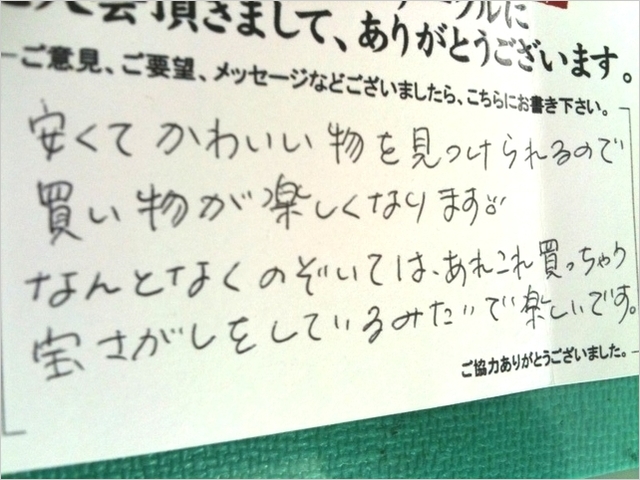 頂きまして、ありがとうございます。
ご意見、ご要望、メッセージなどございましたら、こちらにお書き下さい。
安くてかわいい物を見つけられるので
買い物が楽しくなります
なんとなくのぞいては、あれこれ買っちゃう
宝さがしをしているみたいで楽しいです。
ご協力ありがとうございました。